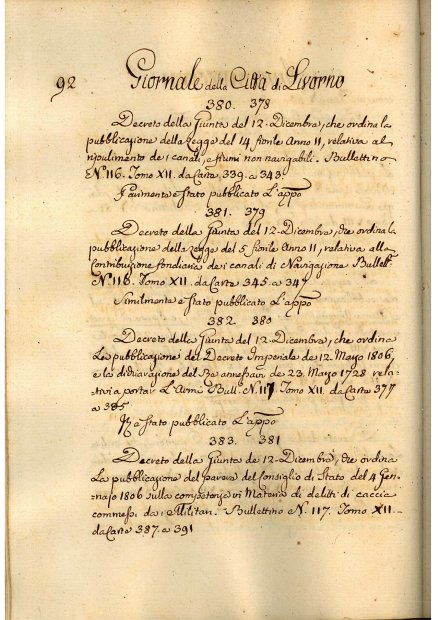 92 Giornale della Città di Livorno
380. 378
Decreto della Giunta del 12. Dicembra, che ordina la
pubblicazione della Legge del 14 fiorile Anno 11, relativa al
ripulimento de i canali, e fiumi non navigabili. Bullettino
N.° 116. Tomo XII. da Carte 339. a 343.
Parimente è stato pubblicato L'appo
381. 379
Decreto della Giunta del 12. Dicembra, che ordina la
pubblicazione della Legge del 5 fiorile Anno 11, relativa alla
Contribuzione fondiaria dei canali di Navigazione Bullett.
N.° 116. Tomo XII. da Carte 345. a 347
Similmente è stato pubblicato L'appo
382. 380
Decreto della Giunta del 12. Dicembra, che ordina
La pubblicazione del Decreto Imperiale de 12. Marzo 1806,
e la dichiarazione del de 23. Marzo 1728 rela-
tivi a portar L'Armi Bull. N. 117. Tomo XII. da Carte 377
a 385
è stato pubblicato L'appo
383. 381
Decreto della Giunta de 12. Dicembra, che ordina
La pubblicazione del parere del Consiglio di Stato del 4 Gen-
najo 1806 sulla competenza in Materia di delitti di caccia
commessi da i Militari. Bullettino N. 117. Tomo XII.
da Carte 387. a 391